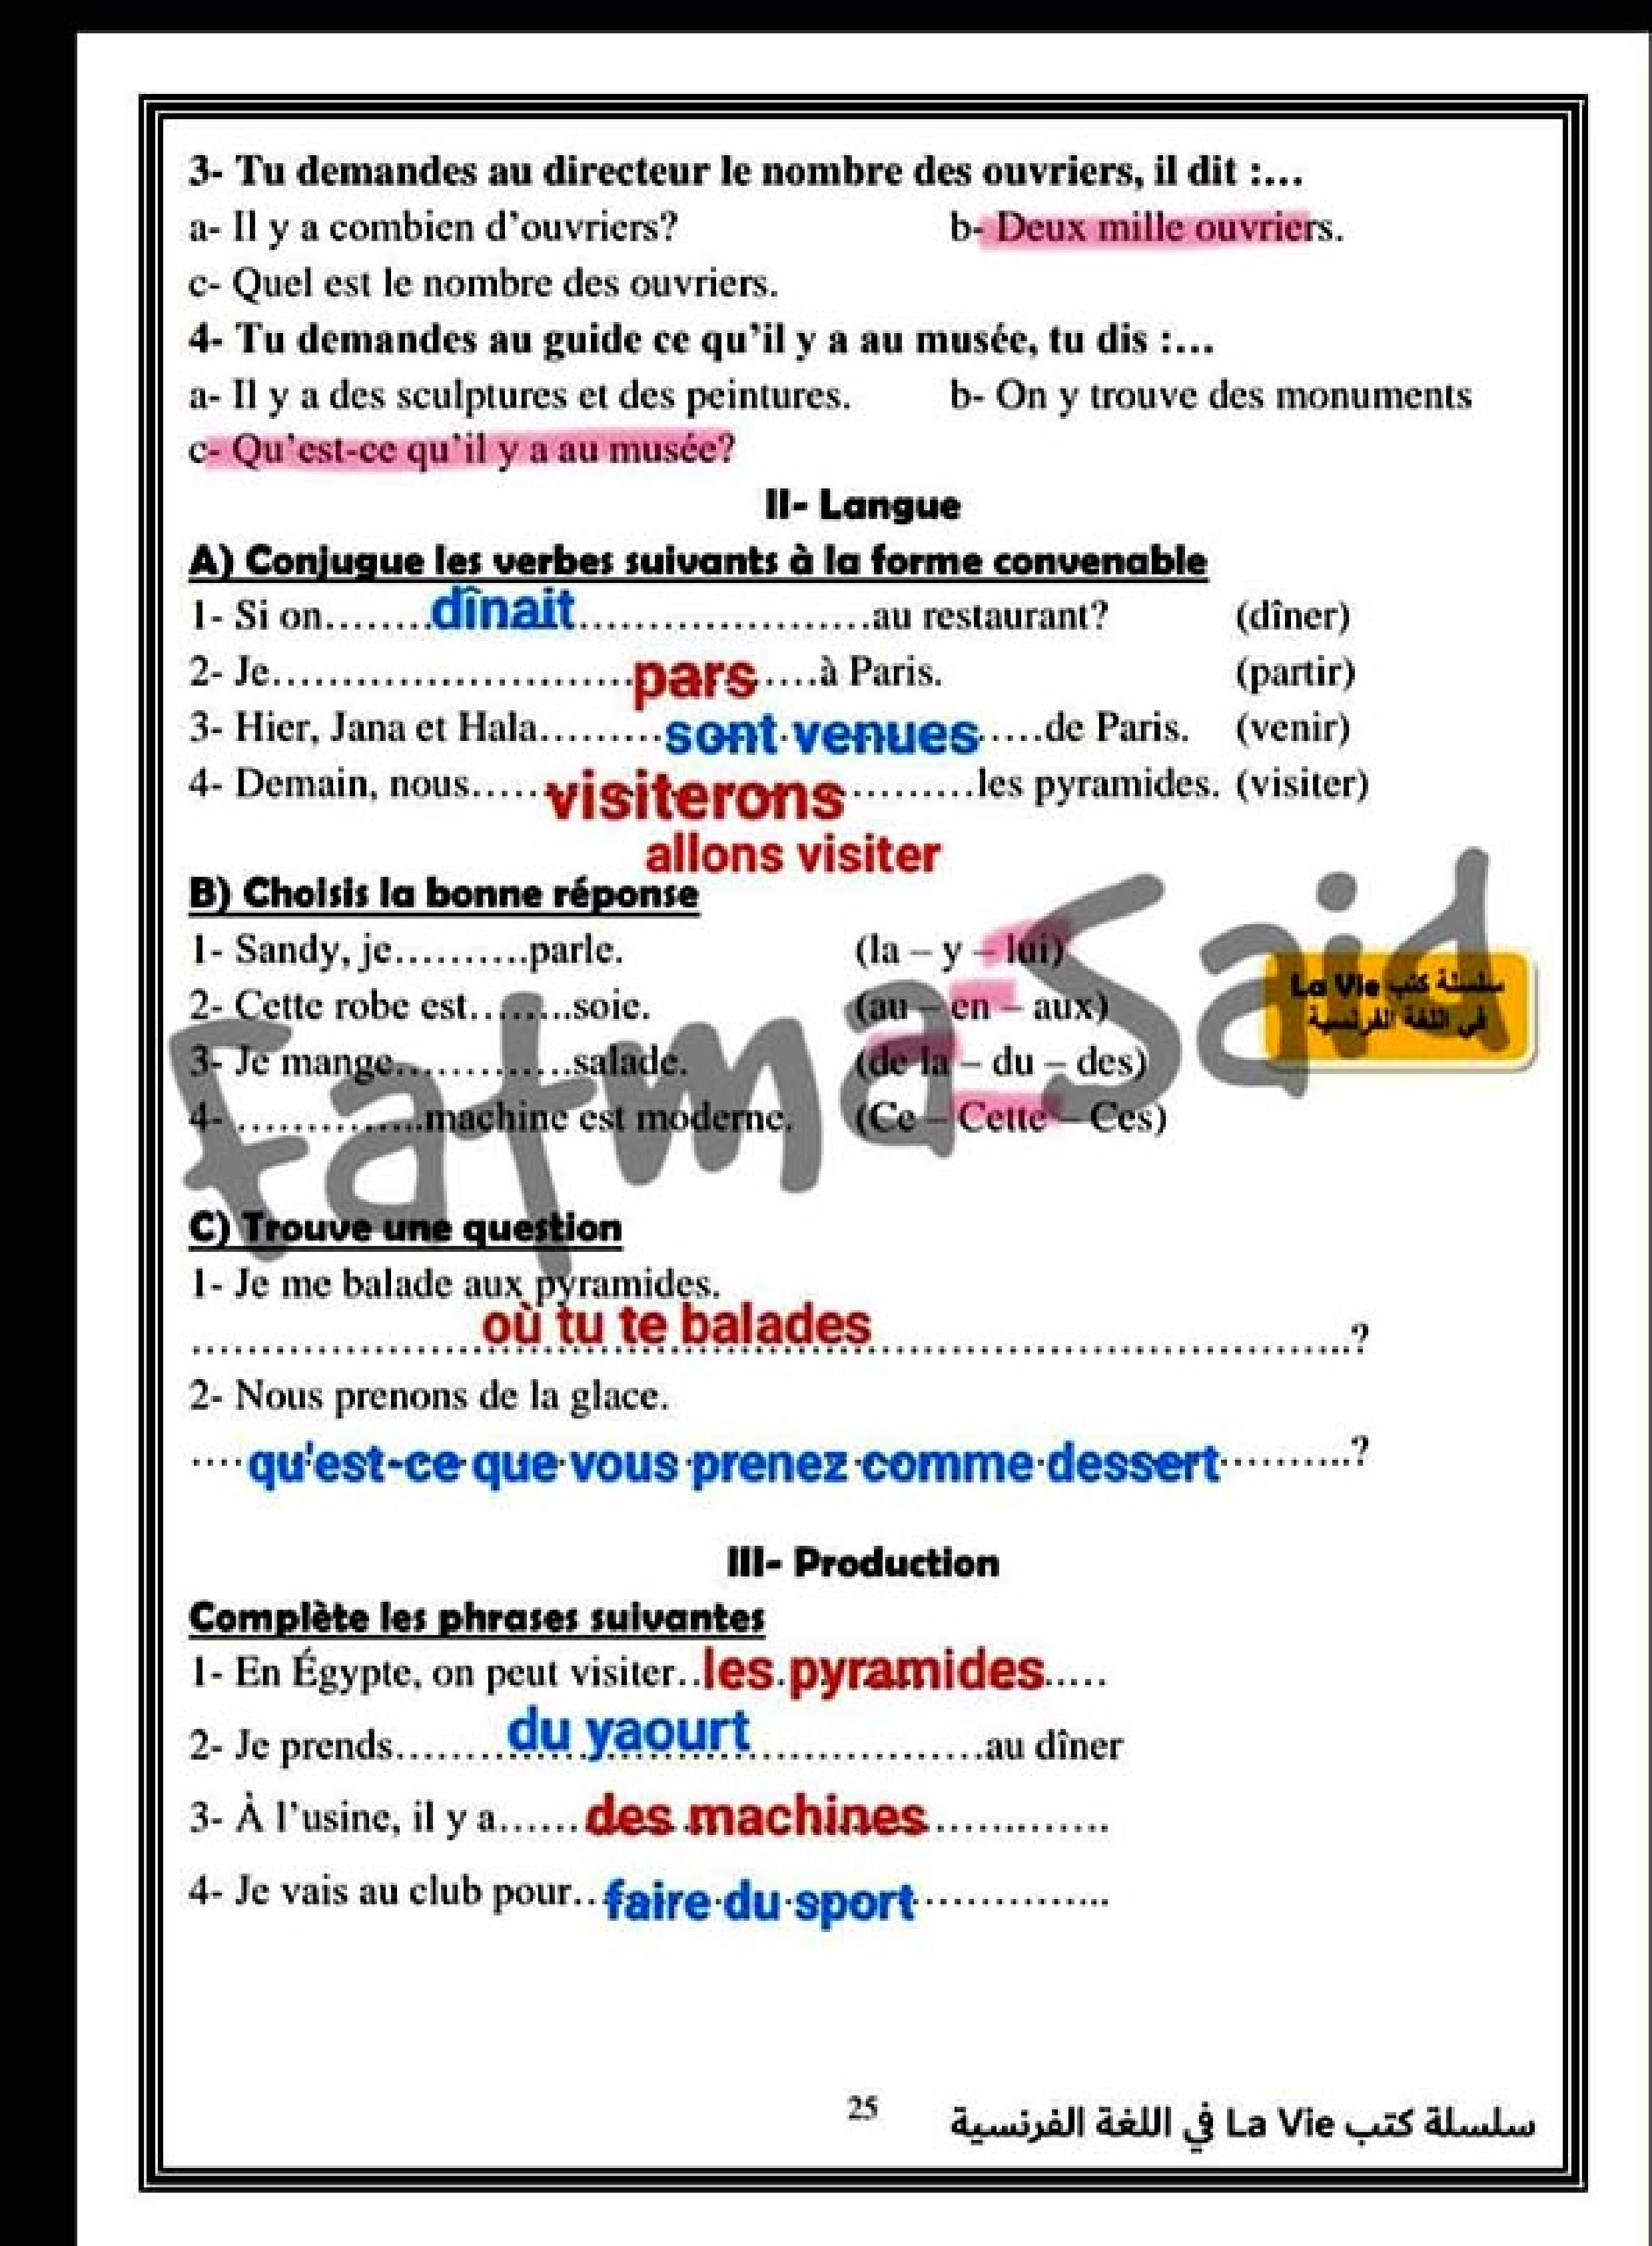 3- Tu demandes au directeur le nombre des ouvriers, il dit :...
a- Il y a combien d'ouvriers? b- Deux mille ouvriers.
c- Quel est le nombre des ouvriers.
4- Tu demandes au guide ce qu'il y a au musée, tu dis :...
a- Il y a des sculptures et des peintures. b- On y trouve des monuments
c- Qu'est-ce qu'il y a au musée?
II- Langue
A) Conjugue les verbes suivants à la forme convenable
1- Si on........dînait.....................au restaurant? (dîner)
2- Je..........................pars.....à Paris. (partir)
3- Hier, Jana et Hala.........sont venues.....de Paris. (venir)
4- Demain, nous.....visiterons.........les pyramides. (visiter)
allons visiter
B) Choisis la bonne réponse
1- Sandy, je..........parle. (la – y – lui)
2- Cette robe est........soie. (au – en – aux)
3- Je mange.............salade. (de la – du – des)
4- ..............machine est moderne. (Ce – Cette – Ces)
Fatma Said
سلسلة كتب La Vie
في اللغة الفرنسية
C) Trouve une question
1- Je me balade aux pyramides.
où tu te balades...?
2- Nous prenons de la glace.
....qu'est-ce que vous prenez comme dessert..........?
III- Production
Complète les phrases suivantes
1- En Égypte, on peut visiter..les pyramides.....
2- Je prends........du yaourt.................au dîner
3- À l'usine, il y a......des machines.............
4- Je vais au club pour..faire du sport..............
25
سلسلة كتب La Vie في اللغة الفرنسية